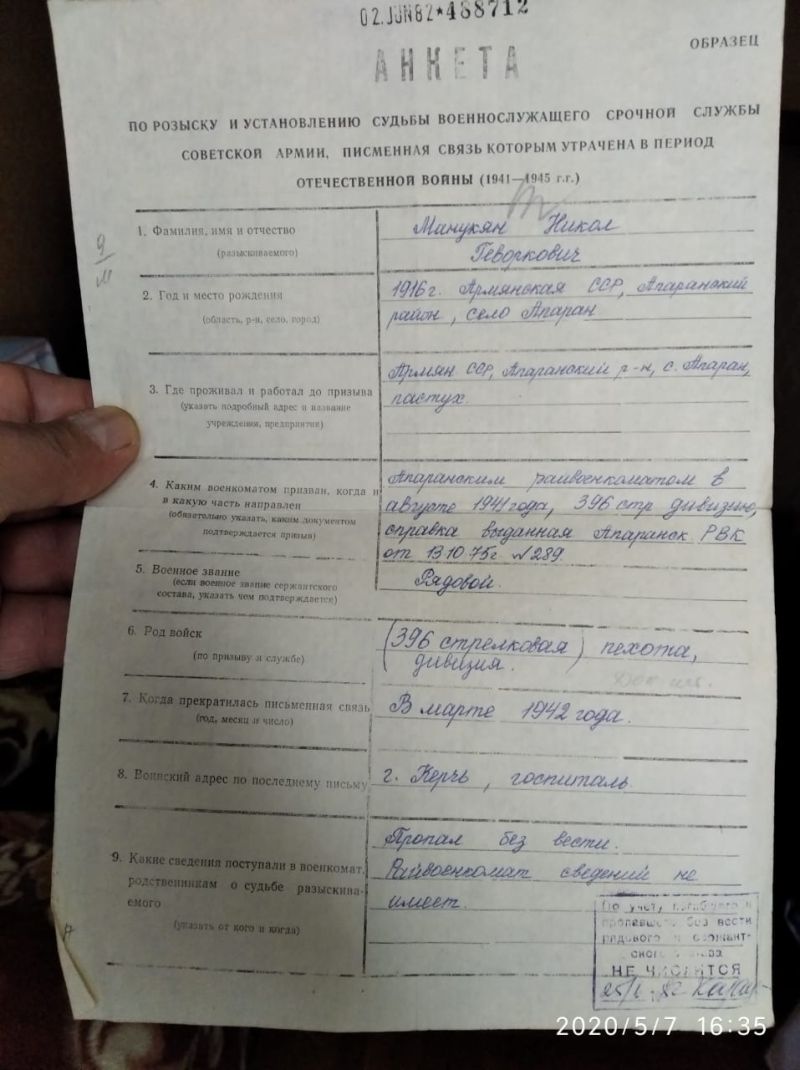 02.JUN82*488712
ОБРАЗЕЦ
АНКЕТА
ПО РОЗЫСКУ И УСТАНОВЛЕНИЮ СУДЬБЫ ВОЕННОСЛУЖАЩЕГО СРОЧНОЙ СЛУЖБЫ
СОВЕТСКОЙ АРМИИ, ПИСМЕННАЯ СВЯЗЬ КОТОРЫМ УТРАЧЕНА В ПЕРИОД
ОТЕЧЕСТВЕННОЙ ВОЙНЫ (1941—1945 г.г.)
1. Фамилия, имя и отчество
(разыскиваемого)
Манукян Никол
Геворкович
2. Год и место рождения
(область, р-н, село, город)
1916 г. Армянская ССР, Апаранский
район, село Апаран
3. Где проживал и работал до призыва
(указать подробный адрес и название
учреждения, предприятия)
Армян ССР, Апаранский р-н, с. Апаран,
пастух.
4. Каким военкоматом призван, когда и
в какую часть направлен
(обязательно указать, каким документом
подтверждается призыв)
Апаранским райвоенкоматом в
августе 1941 года, 396 стр дивизию,
справка выданная Апаранск. РВК
от 13 10. 75 г. №289
5. Военное звание
(если военное звание сержантского
состава, указать чем подтверждается)
Рядовой.
6. Род войск
(по призыву и службе)
(396 стрелковая) пехота,
дивизия.
7. Когда прекратилась письменная связь
(год, месяц и число)
В марте 1942 года.
8. Воинский адрес по последнему письму
г. Керчь, госпиталь
9. Какие сведения поступали в военкомат,
родственникам о судьбе разыскива-
емого
(указать от кого и когда)
Пропал без вести.
Райвоенкомат сведений не
имеет.
По учету погибшего и
пропавшего без вести
рядового и сержант-
ского состава
НЕ ЧИСЛИТСЯ
2020/5/7 16:35